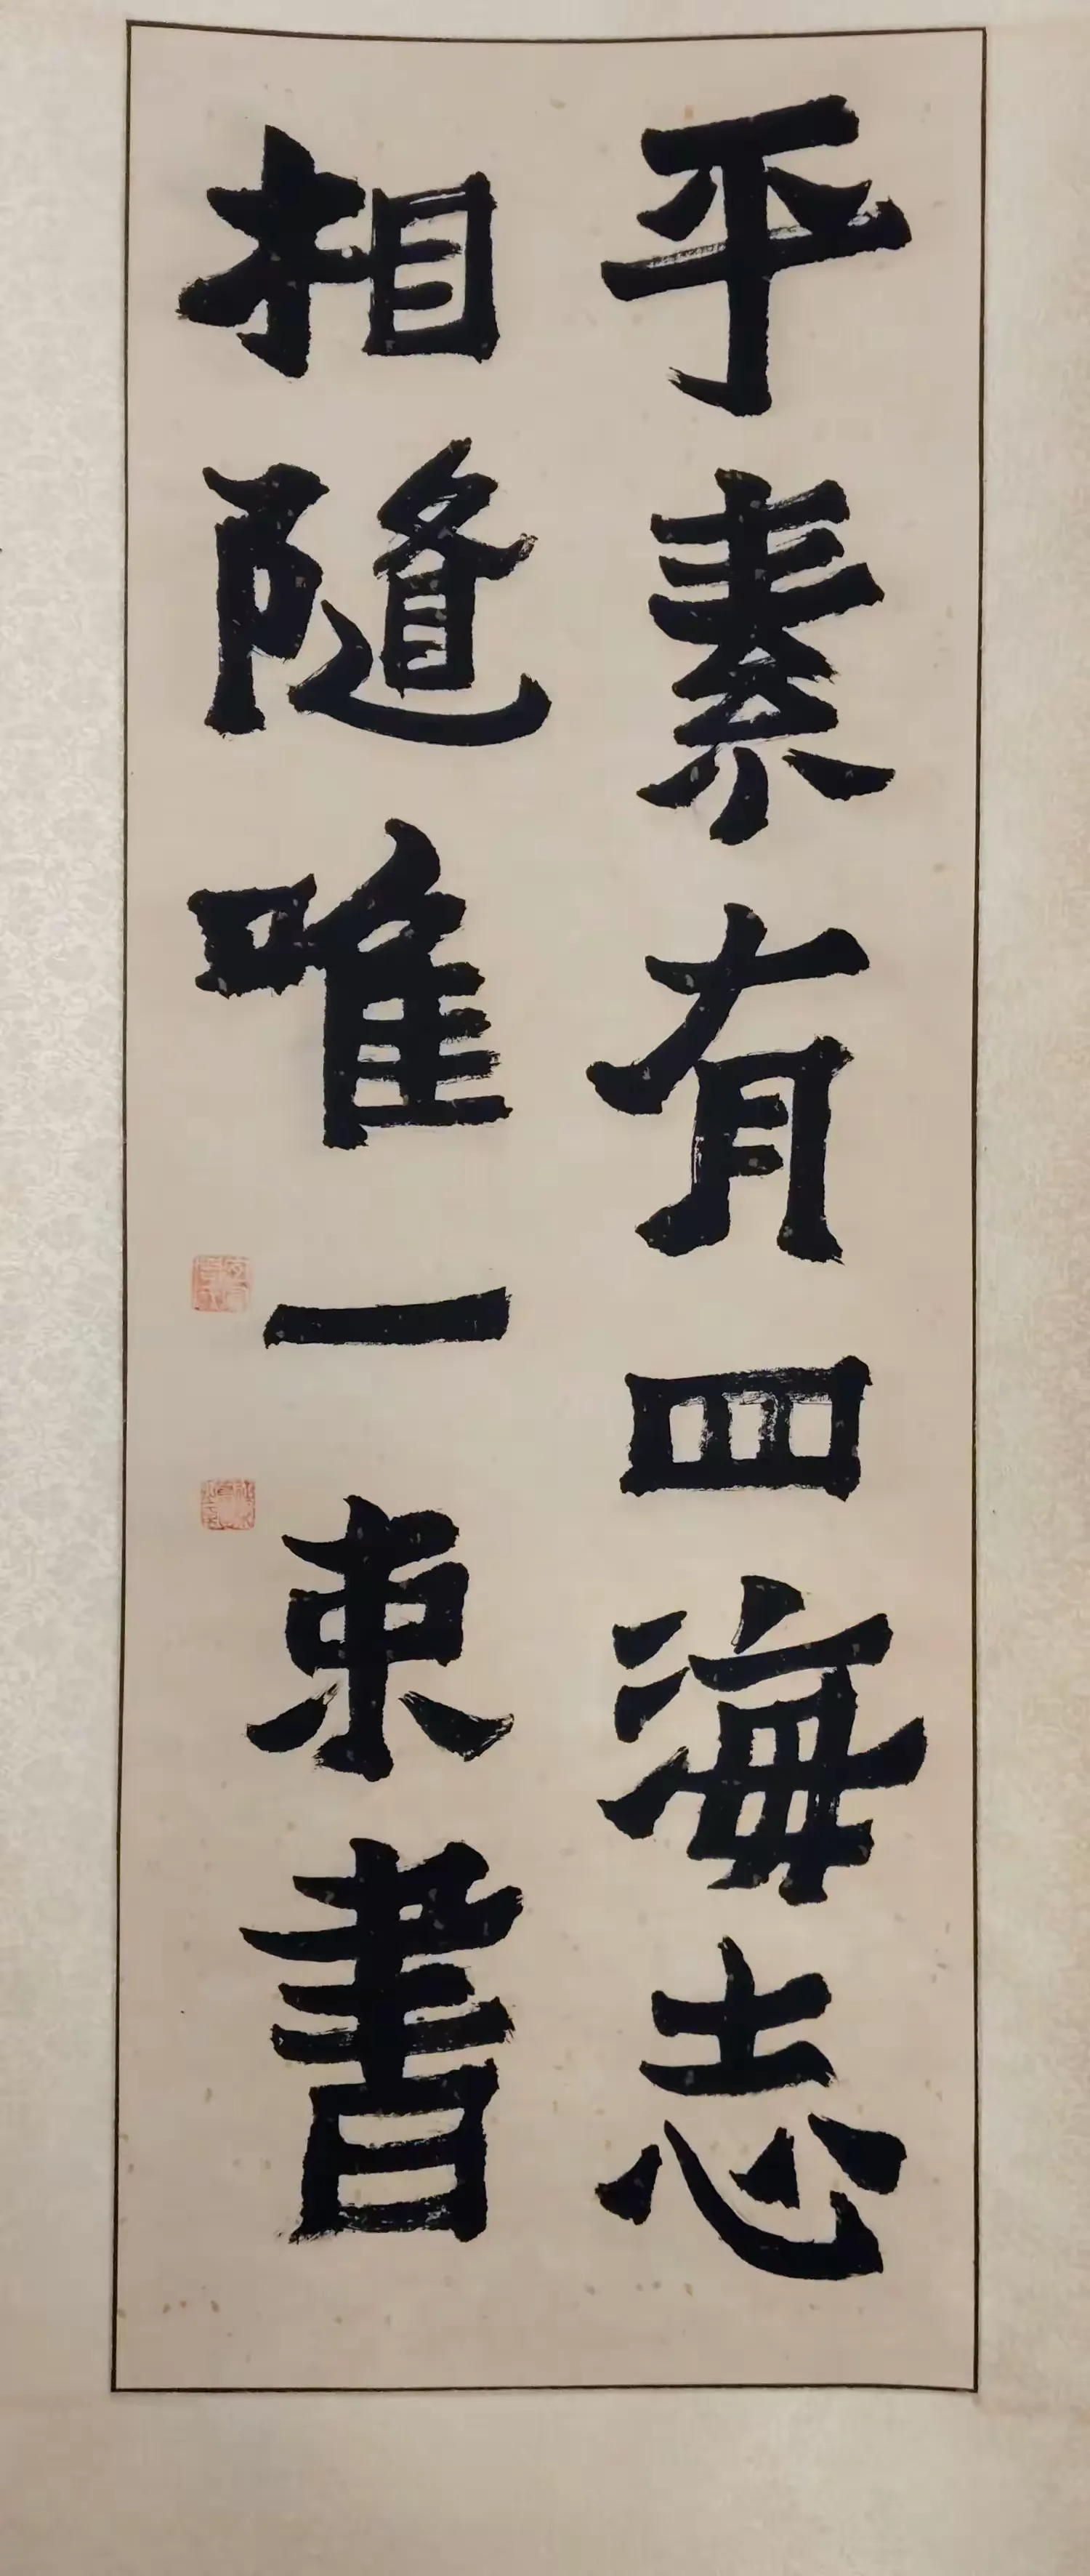 平素有四海志
相隨唯一束書